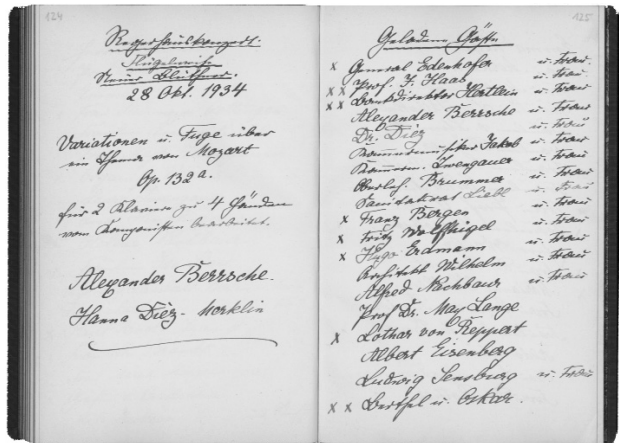 124
Regerhauskonzert.
Flügelweihe
Neuer Blüthner.
28 Okt. 1934
Variationen u. Fuge über
ein Thema von Mozart
Op. 132a.
für 2 Klaviere zu 4 Händen
vom Komponisten bearbeitet.
Alexander Berrsche.
Hanna Diez-Merklin
125
Geladene Gäste
x General Edenhofer u. Frau.
x x Prof. J. Haas u. Frau
x x Bankdirektor Hertlein u. Frau
Alexander Berrsche u. Frau
Dr. Diez u. Frau
Jakob u. Frau
Zwengauer u. Frau
Brummer u. Frau
Sanitätsrat Liebl u. Frau
x Franz Bergen u. Frau
x Fritz Wolfhügel u. Frau
x Hugo Erdmann u. Frau
Architekt Wilhelm u. Frau
Alfred Nachbaur u. Frau
Prof Dr. May Lange
x Lothar von Reppert
Albert Eisenberg
Ludwig Sensburg u. Frau
x x Berthel u. Oskar.